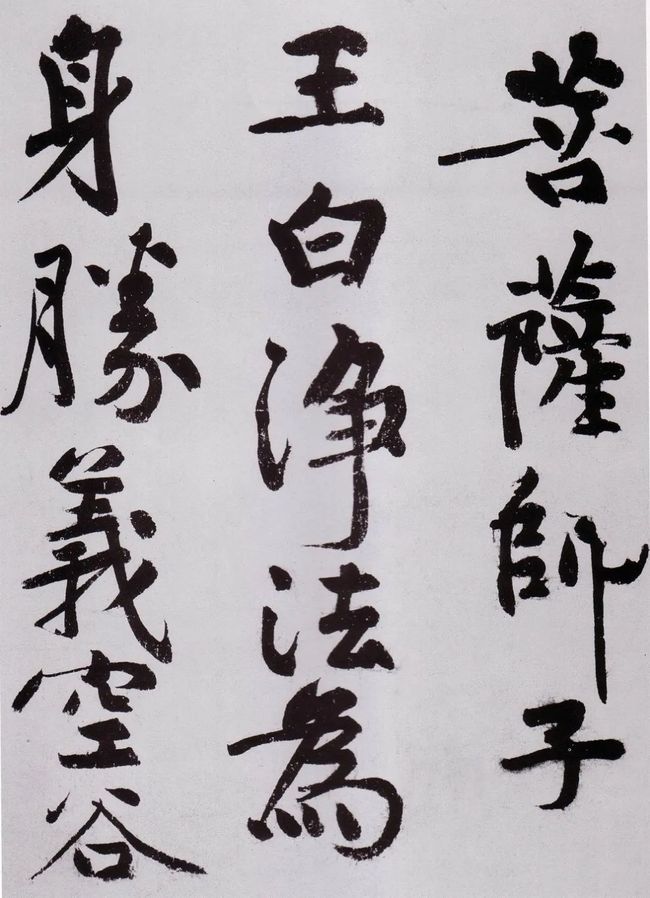 菩薩師子
王白浄法為
身勝義空谷